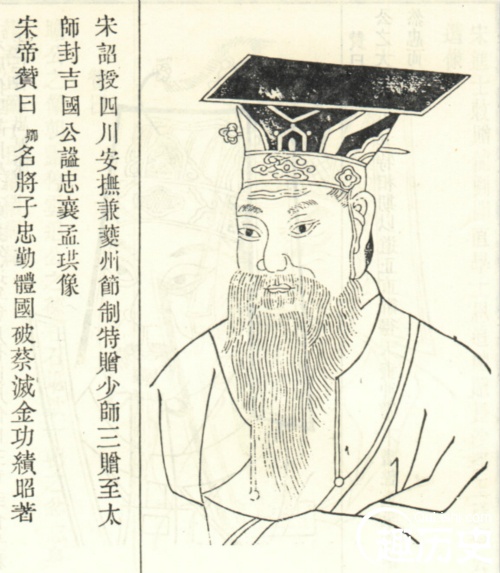 宋詔授四川安撫兼夔州節制特贈少師三贈至太
師封吉國公謚忠襄孟珙像
宋帝贊曰卿名將子忠勤體國破蔡滅金功績昭著
趣历史